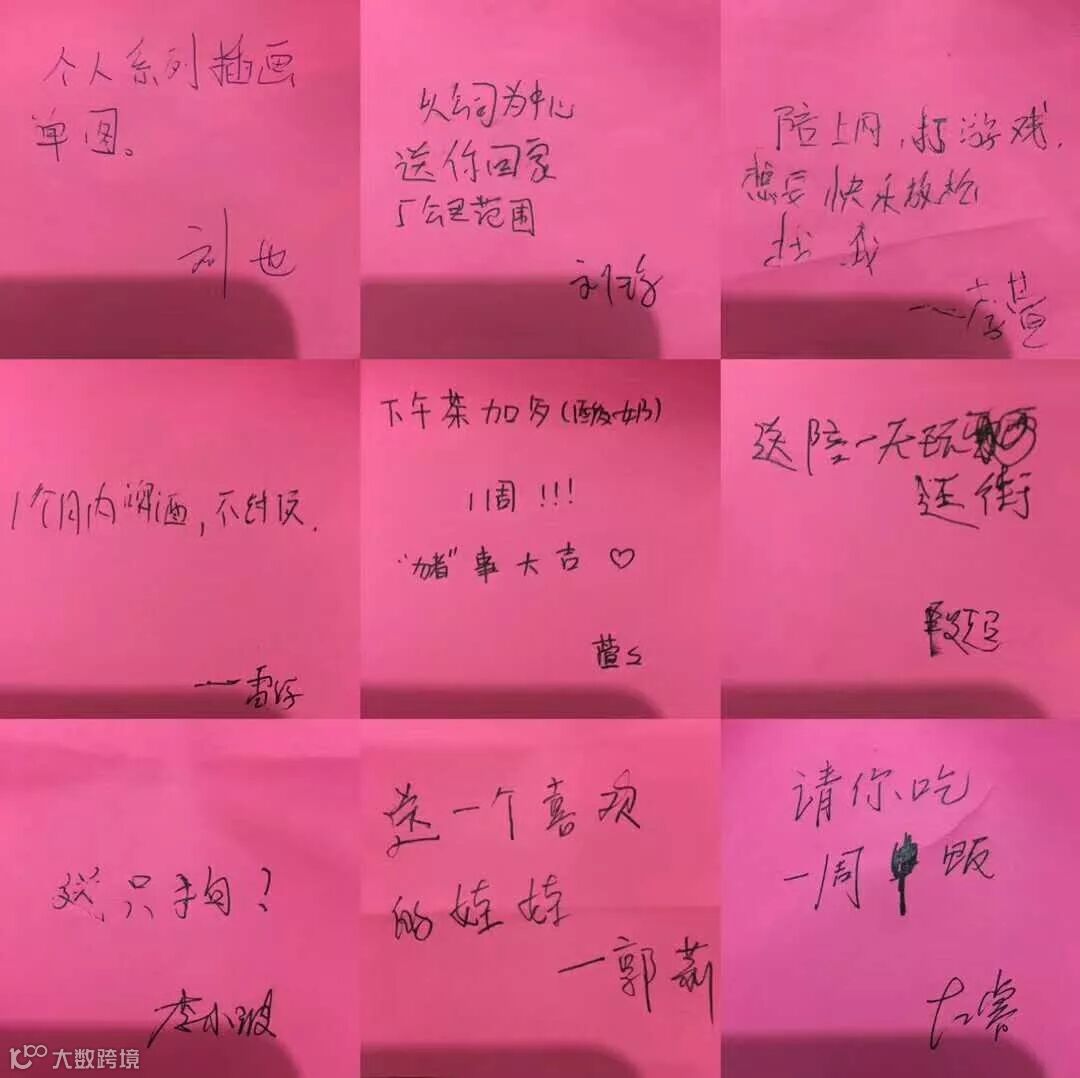 个人系列插画
单图。
刘也
以公司为中心
送你回家
5公里范围
刘玲
陪上网,打游戏,
想要快乐放松
找我
一李萱
1个月内啤酒,不针没.
一雷
下午茶加多(酸奶)
1周!!!
“猪”事大吉♡
萱
送陪一天玩
逛街
段
送只狗?
李小璇
送一个喜欢
的娃娃
一郭莉
请你吃
一周 饭
大数跨境